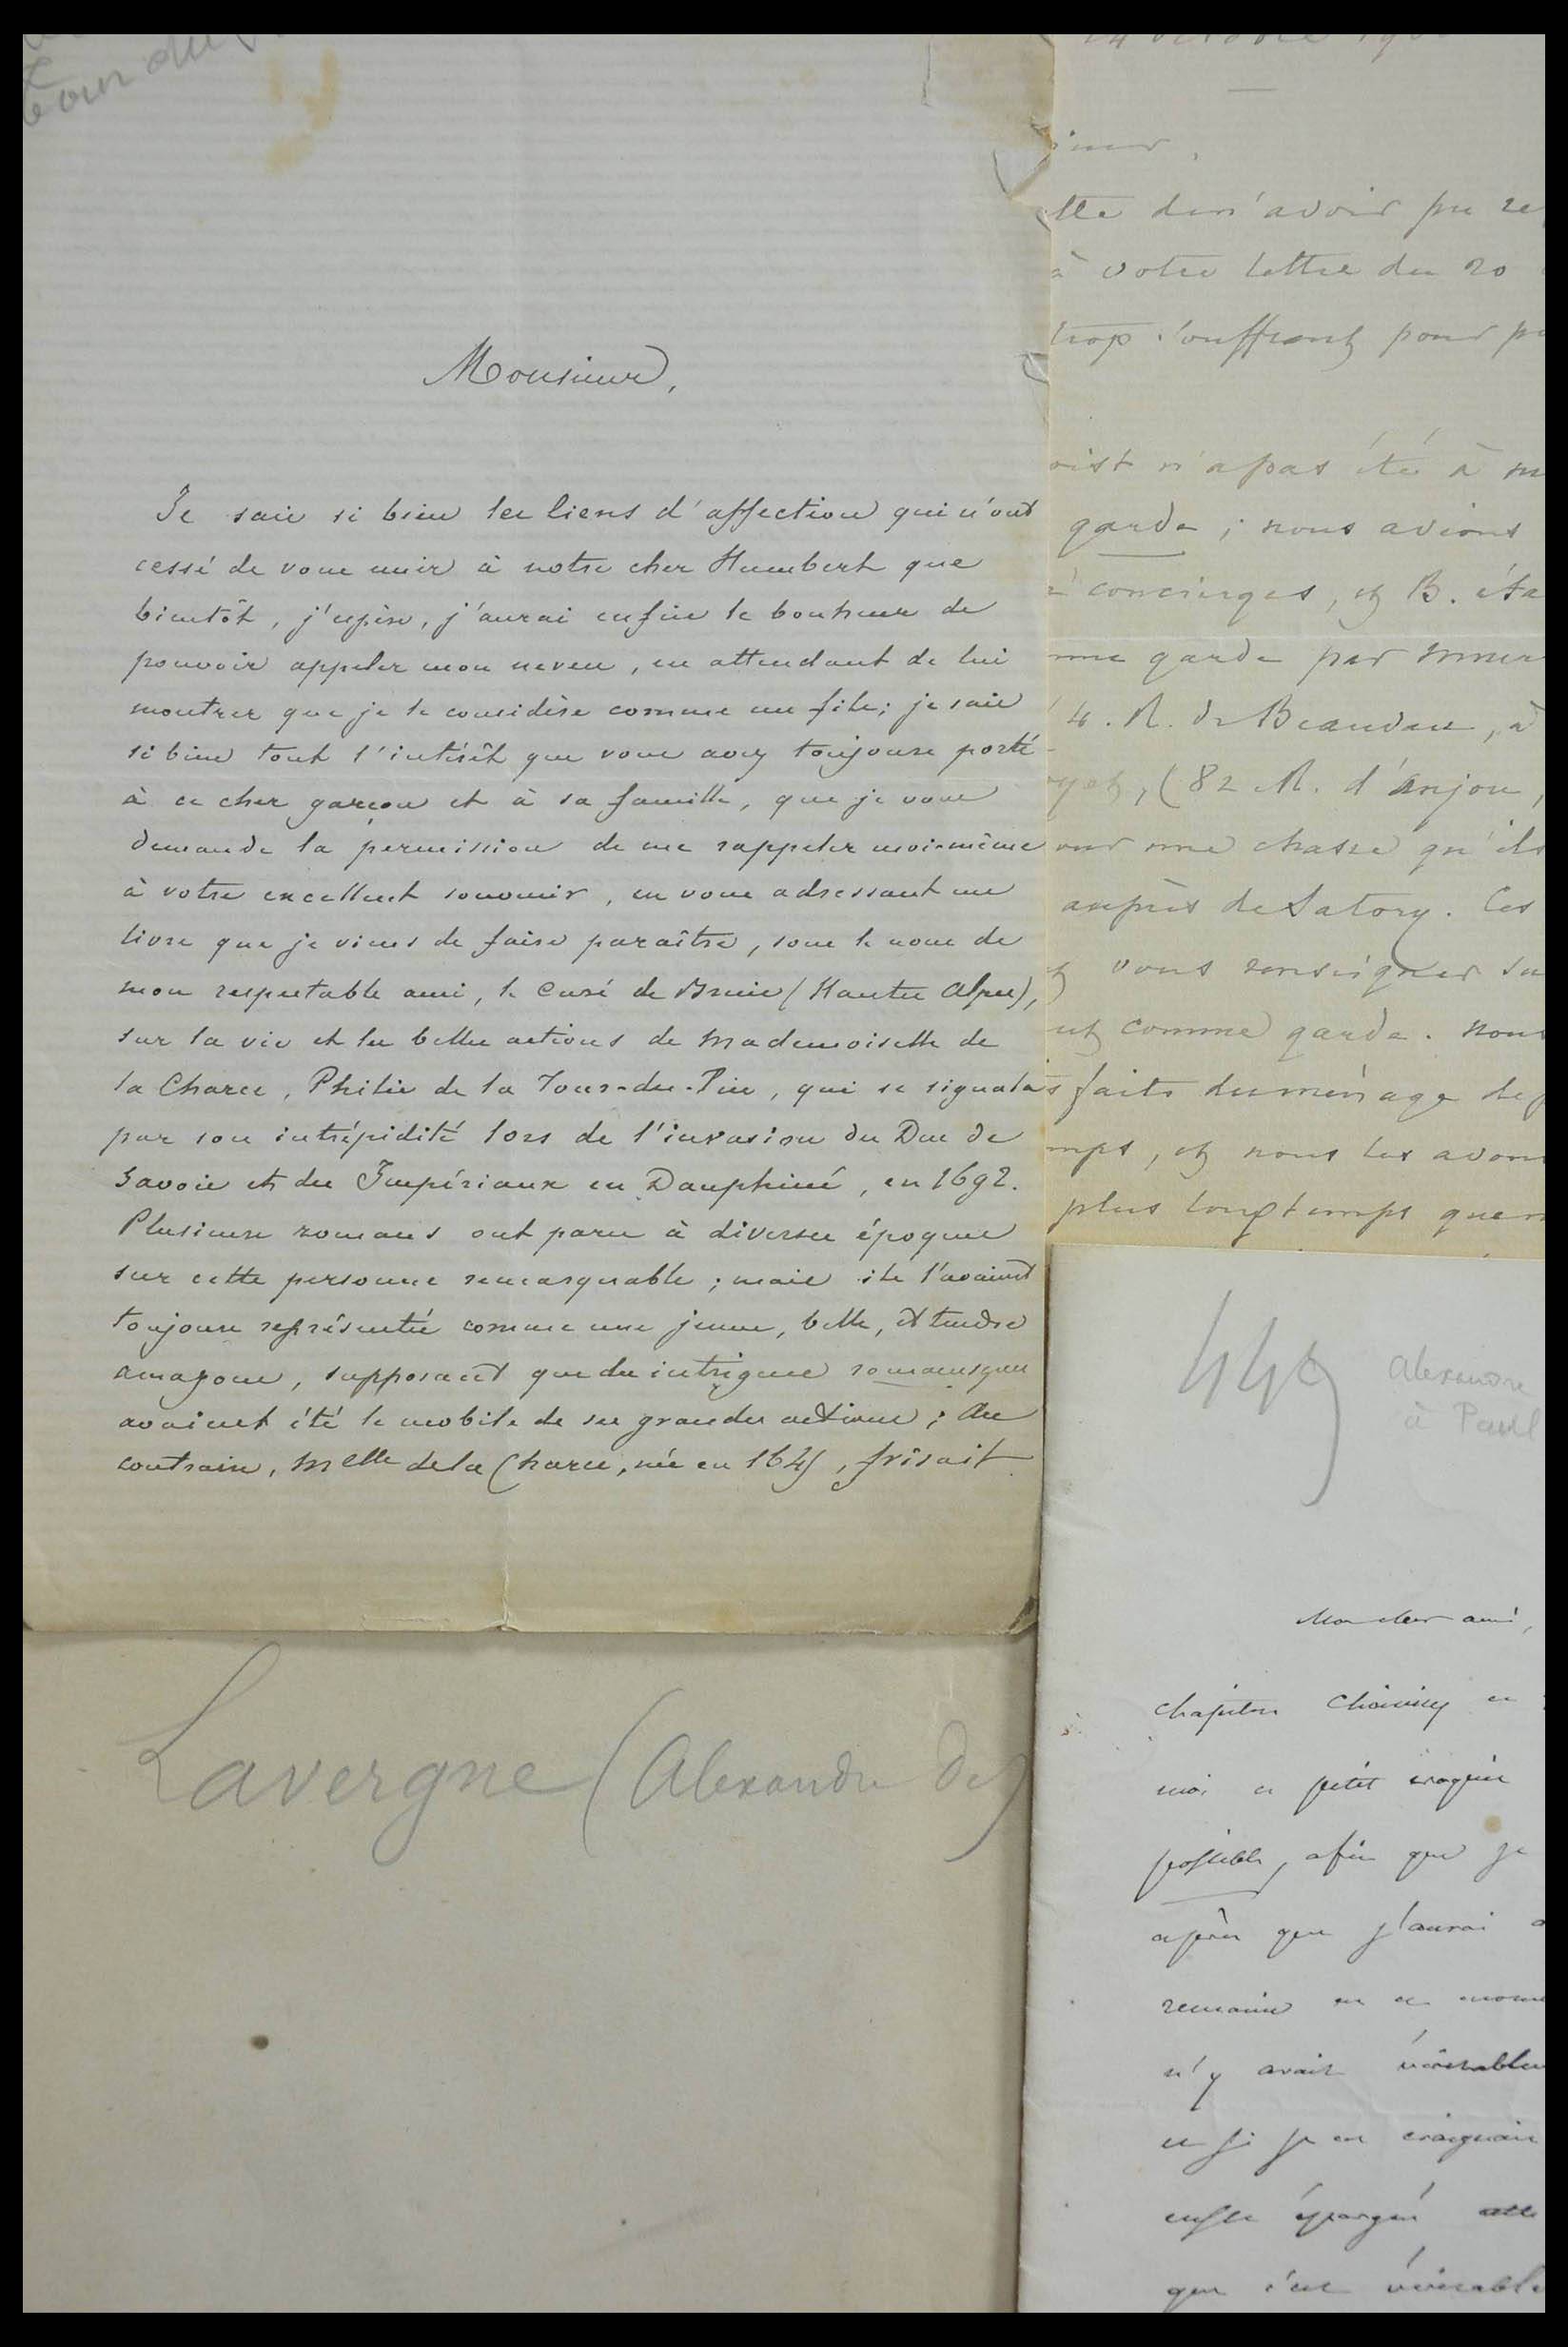 Monsieur,
Je sais si bien les liens d'affection qui n'ont
cessé de vous unir à notre cher Humbert que
bientôt, j'espère, j'aurai enfin le bonheur de
pouvoir appeler mon neveu, en attendant de lui
montrer que je le considère comme un fils; je sais
si bien tout l'intérêt que vous avez toujours porté
à ce cher garçon et à sa famille, que je vous
demande la permission de me rappeler moi-même
à votre excellent souvenir, en vous adressant un
livre que je viens de faire paraître, sous le nom de
mon respectable ami, le Curé de (Hautes Alpes),
sur la vie et les belles actions de Mademoiselle de
la Charce, Philis de la Tour-du-Pin, qui se signala
par son intrépidité lors de l'invasion du Duc de
Savoie et des Impériaux en Dauphiné, en 1692.
Plusieurs romans ont paru à diverses époques
sur cette personne remarquable; mais ils l'avaient
toujours représentée comme une jeune, belle, et tendre
amazone, supposant que des intrigues romanesques
avaient été le mobile de ses grandes actions; Au
contraire, Melle de la Charce, née en 1645, frisait
Lavergne (Alexandre de)
tte de n'avoir pu re
à votre lettre du 20
trop souffrant pour po
n'a pas été à m
garde; nous avions
concierges, et B. éta
garde par
4. R. de Beaudeu, à
(82 R. d'Anjou,
une chasse qu'ils
auprès de Satory. Ces
vous renseigner su
comme garde. nous
faits du ménage de
mps, et nous les avons
plus longtemps que
449
Alexandre
à Paul
Mon cher ami,
chapitre Choisissez ce
moi ce petit croquis
possible, afin que je
après que j'aurai
en ce mome
n'y avait véritablem
et si je ne craignais
épargné cette
que c'est véritable